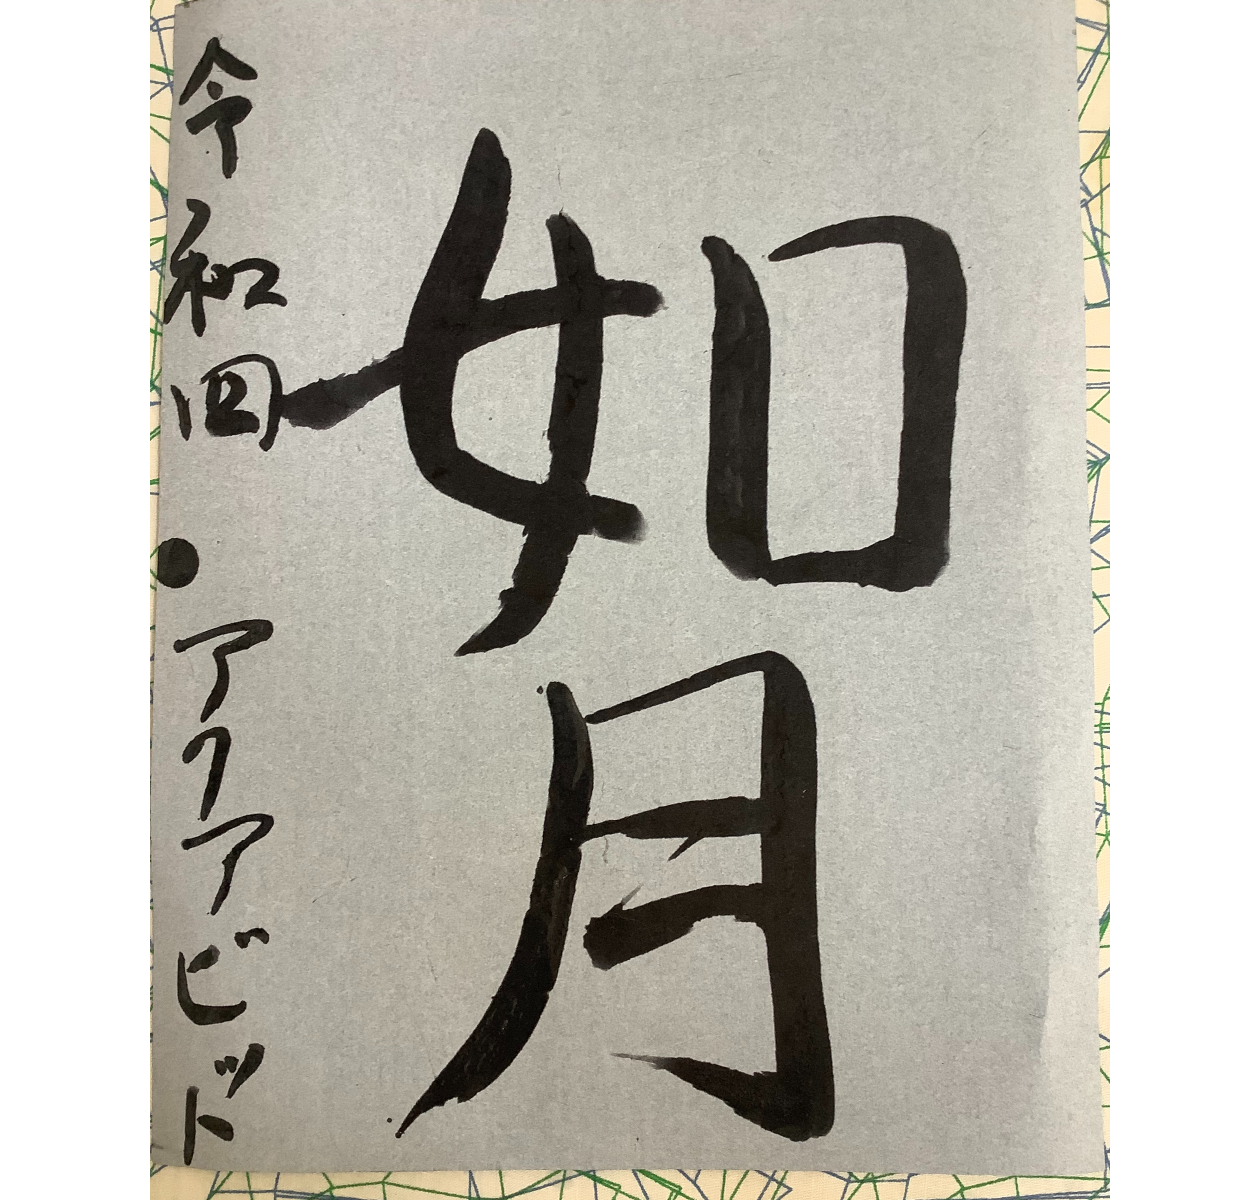 如月
令和四・アクアビット